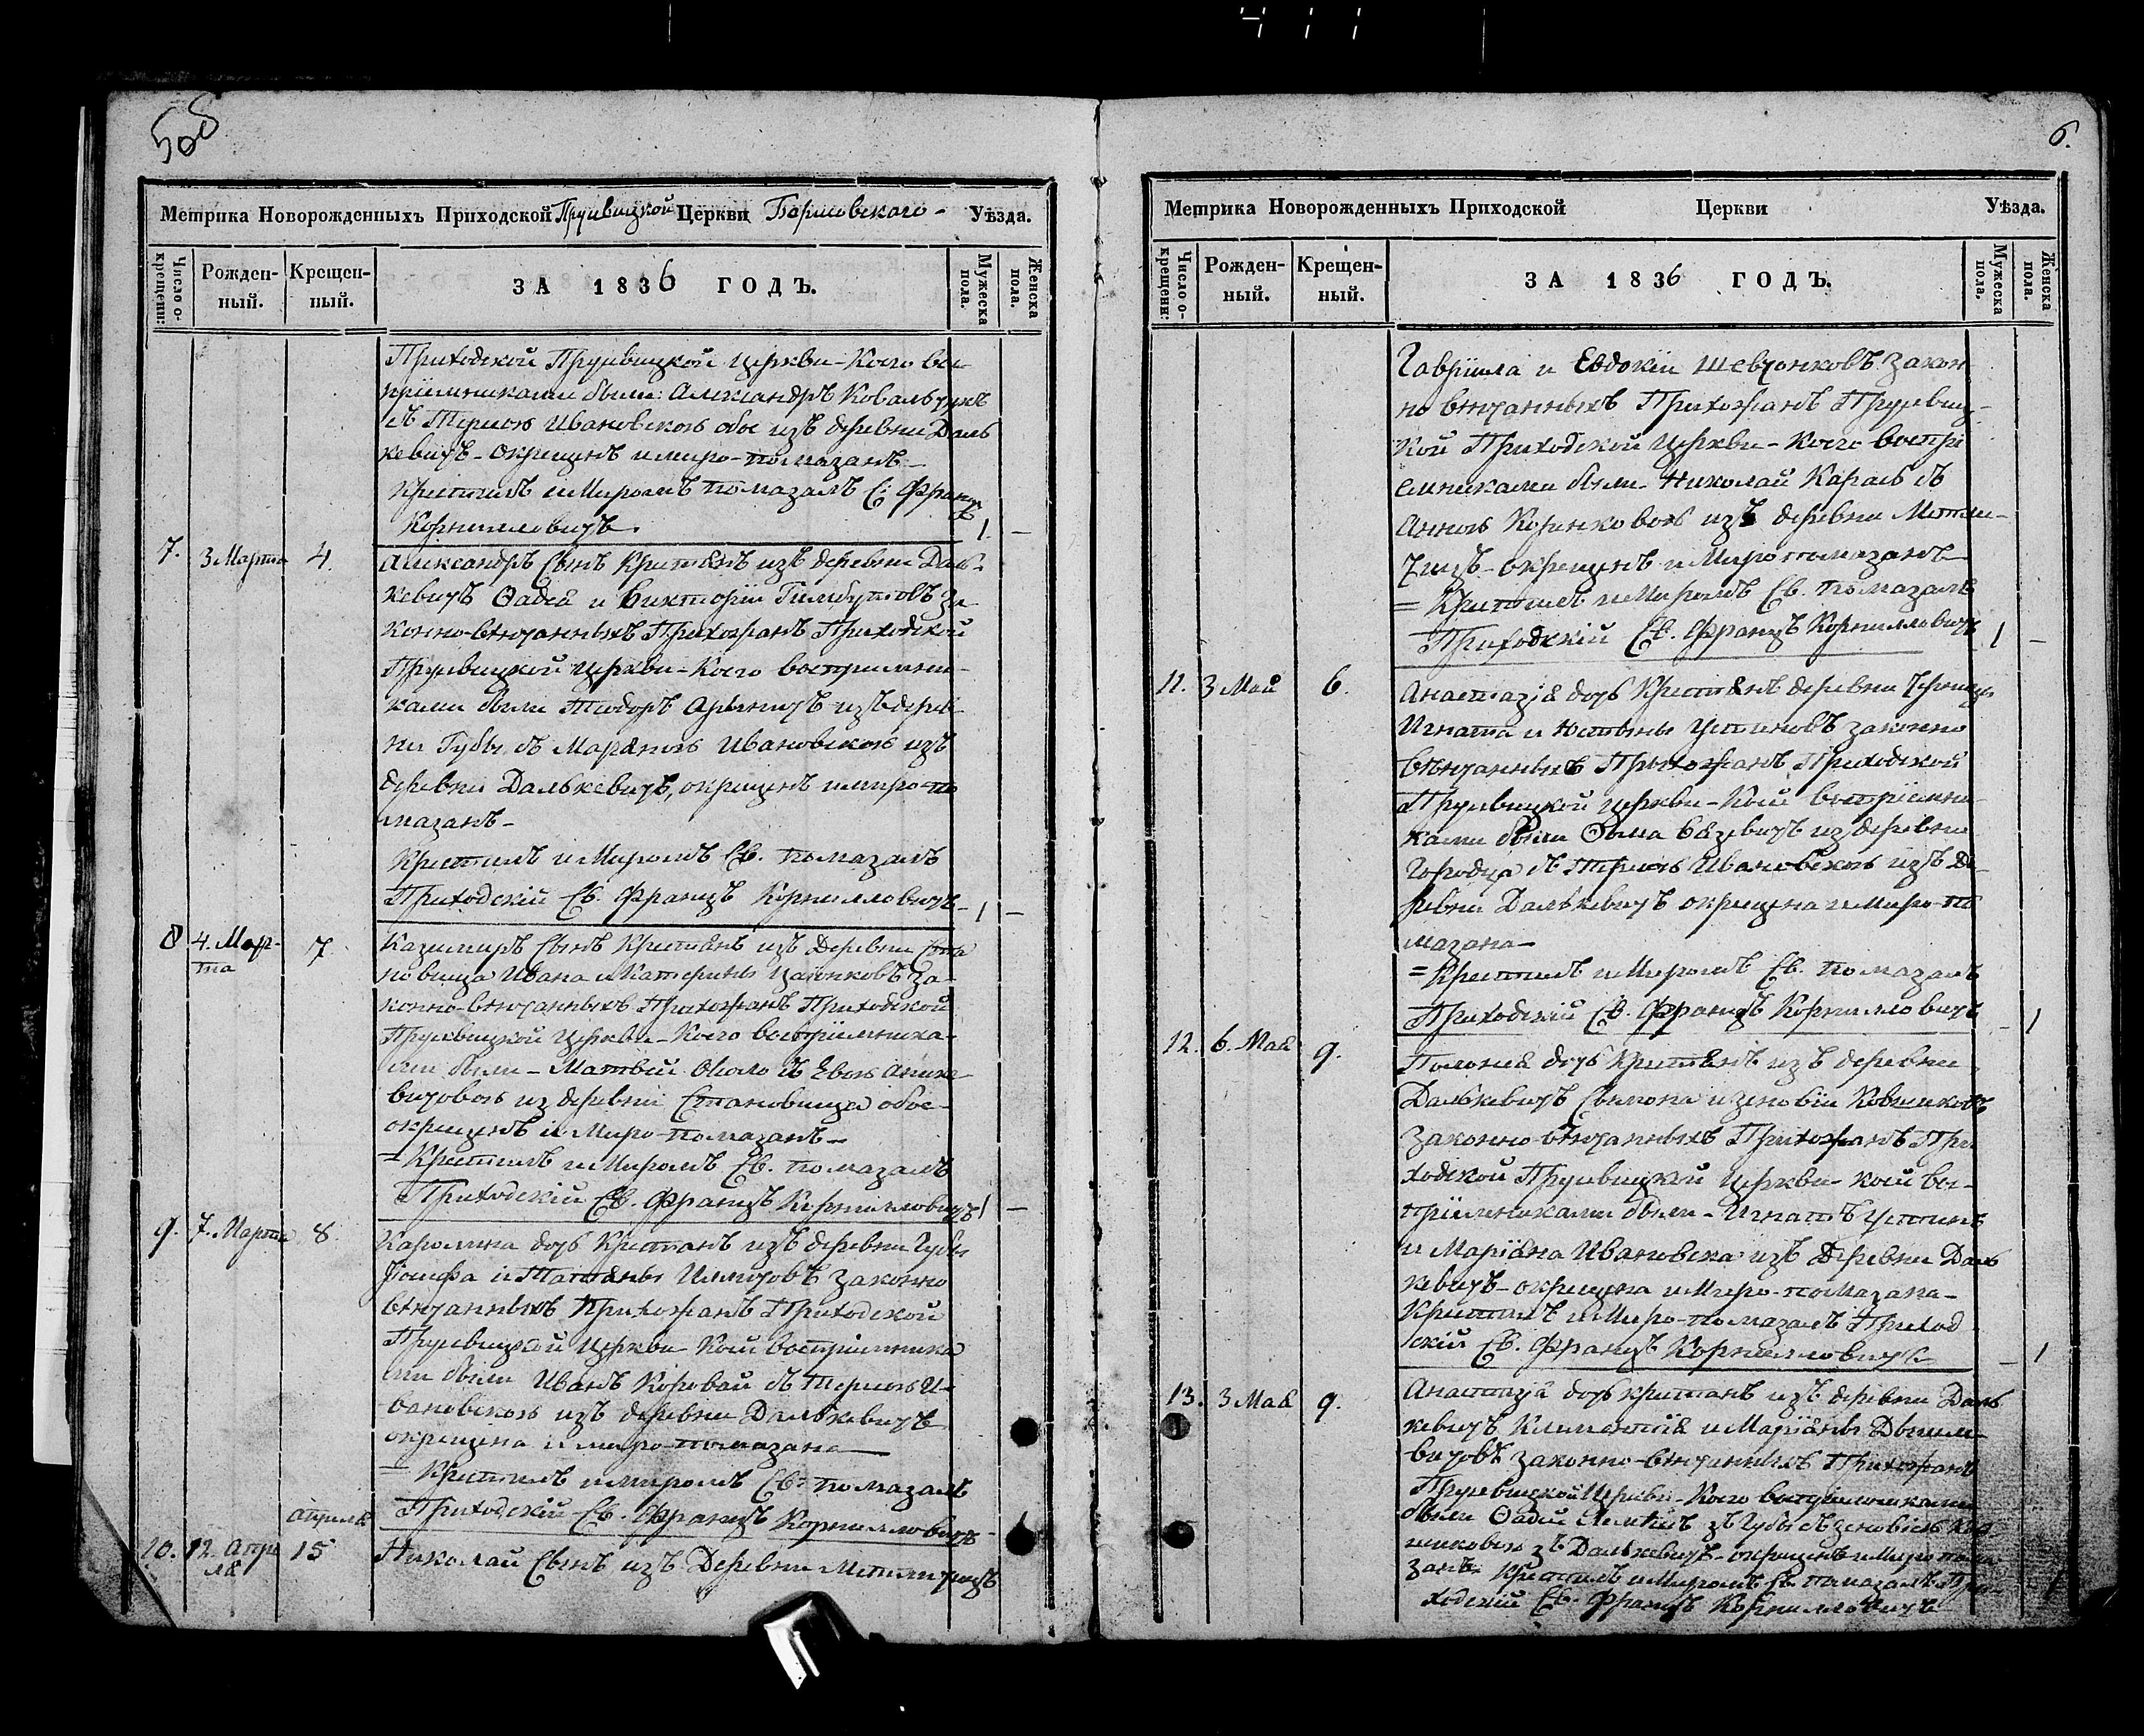 508
Метрика Новорожденныхъ Приходской Пруевицкой Церкви Борисовскаго - Уѣзда.
Число о-крещенн: Рожден-ный. Крещен-ный. ЗА 1836 ГОДЪ. Мужеска пола. Женска пола.
Приходской Пруевицкой церкви - Коего вос
пріемниками были: Александръ Ковальчукъ
съ Терезою Ивановскою обое изъ деревни Даль
кевичъ - окрещенъ и миро-помазанъ -
Крестилъ и Миромъ помазалъ С: Францъ
Корнилловичъ. 1. -
7. 3 Марта 4. Александръ сынъ Крестьянъ изъ деревни Даль-
кевичъ Ѳадея и Викторіи Гимбутовъ за
конно-вѣнчанныхъ Прихожанъ Приходской
Пруевицкой церкви - Коего воспріемни-
ками были Тиодоръ изъ дерев
ни Губы съ Маряною Ивановскою изъ
деревни Далькевичъ, окрещенъ и миро-по
мазанъ -
Крестилъ и Миромъ Св. помазалъ
Приходскій Св. Францъ Корнилловичъ - 1 -
8 4. Мар-та 7 Казимиръ сынъ Крестьянъ изъ Деревни Ста
новища Ивана и Катерины за-
конно-вѣнчанныхъ Прихожанъ Приходской
Пруевицкой Церкви - Коего воспріемника-
ми были - Матвей съ Евою
из деревни Становища обое -
окрещенъ и Миро-помазанъ -
= Крестилъ и Миромъ Св. помазалъ
Приходскій Св. Францъ Корнилловичъ 1 -
9. 7. Марта 8. Каролина дочь Крестьянъ изъ деревни Губы
Іосифа и Татьяны законно
вѣнчанныхъ Прихожанъ Приходской
Пруевицкой Церкви Коей воспріемника
ми были Иванъ Коровай съ Терезою И-
вановскою изъ деревни Далькевичъ
окрещена и миро-помазана
= Крестилъ и миромъ Св. помазалъ
Приходскій Св. Францъ Корнилловичъ -
10. 12. Апреля Апреля 15 Николай Сынъ изъ Деревни Метличицъ
6.
Метрика Новорожденныхъ Приходской Церкви Уѣзда.
Число о-крещенн: Рожден-ный. Крещен-ный. ЗА 1836 ГОДЪ. Мужеска пола. Женска пола.
Гавріила и Евдокіи Шевчонковъ закон
но вѣнчанныхъ Прихожанъ Пруевиц-
кой Приходской Церкви - коего воспрі
емниками были Николай Карась съ
Анною изъ деревни Метли-
чицъ - окрещенъ и Миропомазанъ -
= Крестилъ и Миромъ Св. помазалъ
Приходскій Св. Францъ Корнилловичъ 1 -
11. 3 Май 6. Анастазія дочь Крестьянъ деревни
Игната и Юстыны Устиновъ законно
вѣнчанныхъ Прыхожанъ Приходской
Пруевицкой церкви - Коей воспріемни-
ками были Ѳома изъ деревни
Городца съ Терезою Ивановскою изъ Де-
ревни Далькевичъ окрещена и Миро-по
мазана -
= Крестилъ и Миромъ Св. помазалъ
Приходскій Св. Францъ Корнилловичъ - 1
12. 6. Мая 9. Полонея дочь Крестьянъ изъ деревни
Далькевичъ Сымона и Зеновіи
законно-вѣнчанныхъ Прихожанъ При
ходской Пруевицкой Церкви - коей вос-
пріемниками были - Игнатъ Устинъ
и Маріана Ивановска изъ Деревни Даль
кевичъ - окрещена и Миро-помазана -
Крестилъ и Миро-помазалъ Приход
скій Св. Францъ Корнилловичъ - 1
13. 3 Мая 9. Анастазія дочь крестьянъ изъ деревни Даль
кевичъ Климентія и Маріаны
законно-вѣнчанныхъ Прихожанъ
Пруевицкой Церкви - Коего воспріемниками
были Ѳадей зъ Губы съ Зеновіею
зъ Далькевичъ - окрещенъ и Миро пома
занъ Крестилъ и Миромъ Св помазалъ При
ходскій Св. Францъ Корнилловичъ